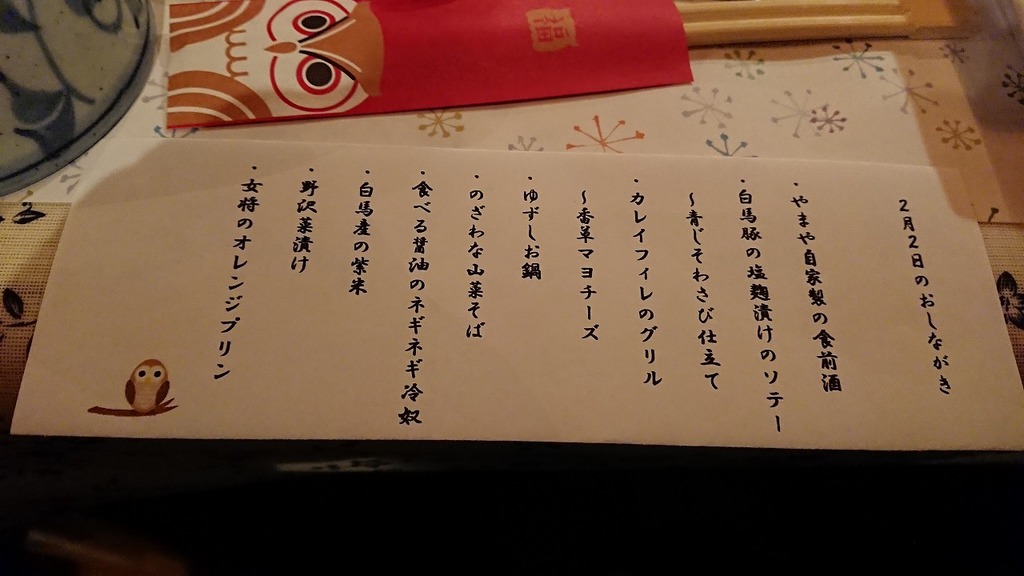 福
2月2日のおしながき
・やまや自家製の食前酒
・白馬豚の塩麹漬けのソテー
～青じそわさび仕立て
・カレイフィレのグリル
～香草マヨチーズ
・ゆずしお鍋
・のざわな山菜そば
・食べる醤油のネギネギ冷奴
・白馬産の紫米
・野沢菜漬け
・女将のオレンジプリン